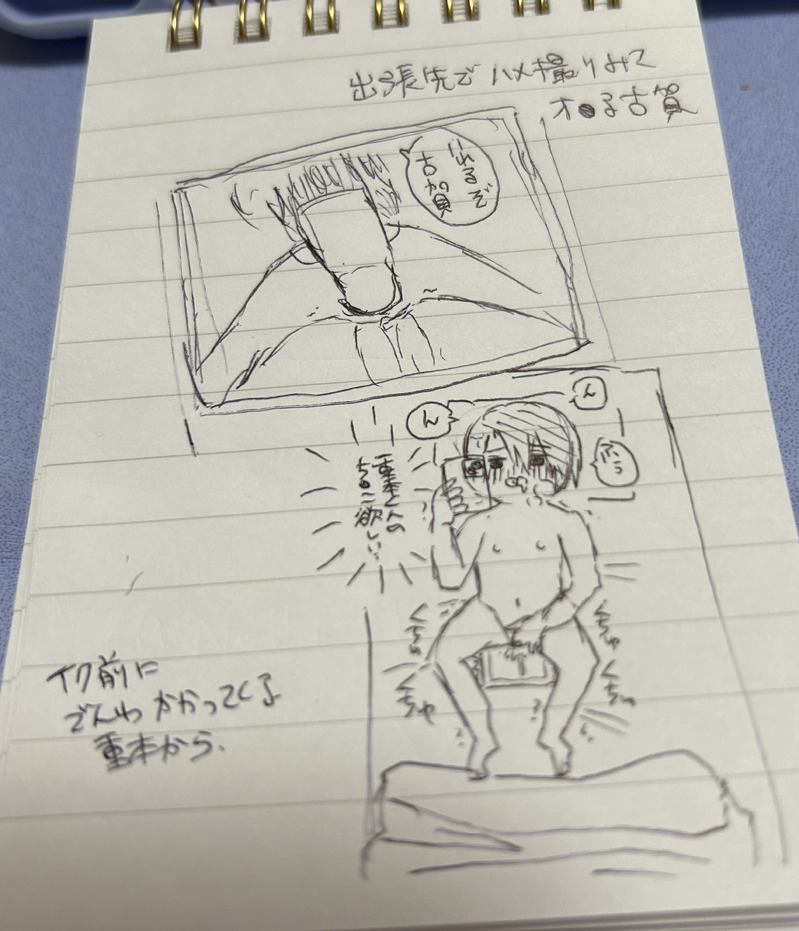 出張先でハメ撮りみて
オ●る古賀
いれるぞ
古賀
ん
ん
ふぅ
重本さんの
欲しい
くちゅ
くちゅ
くちゅ
くちゅ
イク前に
でんわかかってくる
重本から.